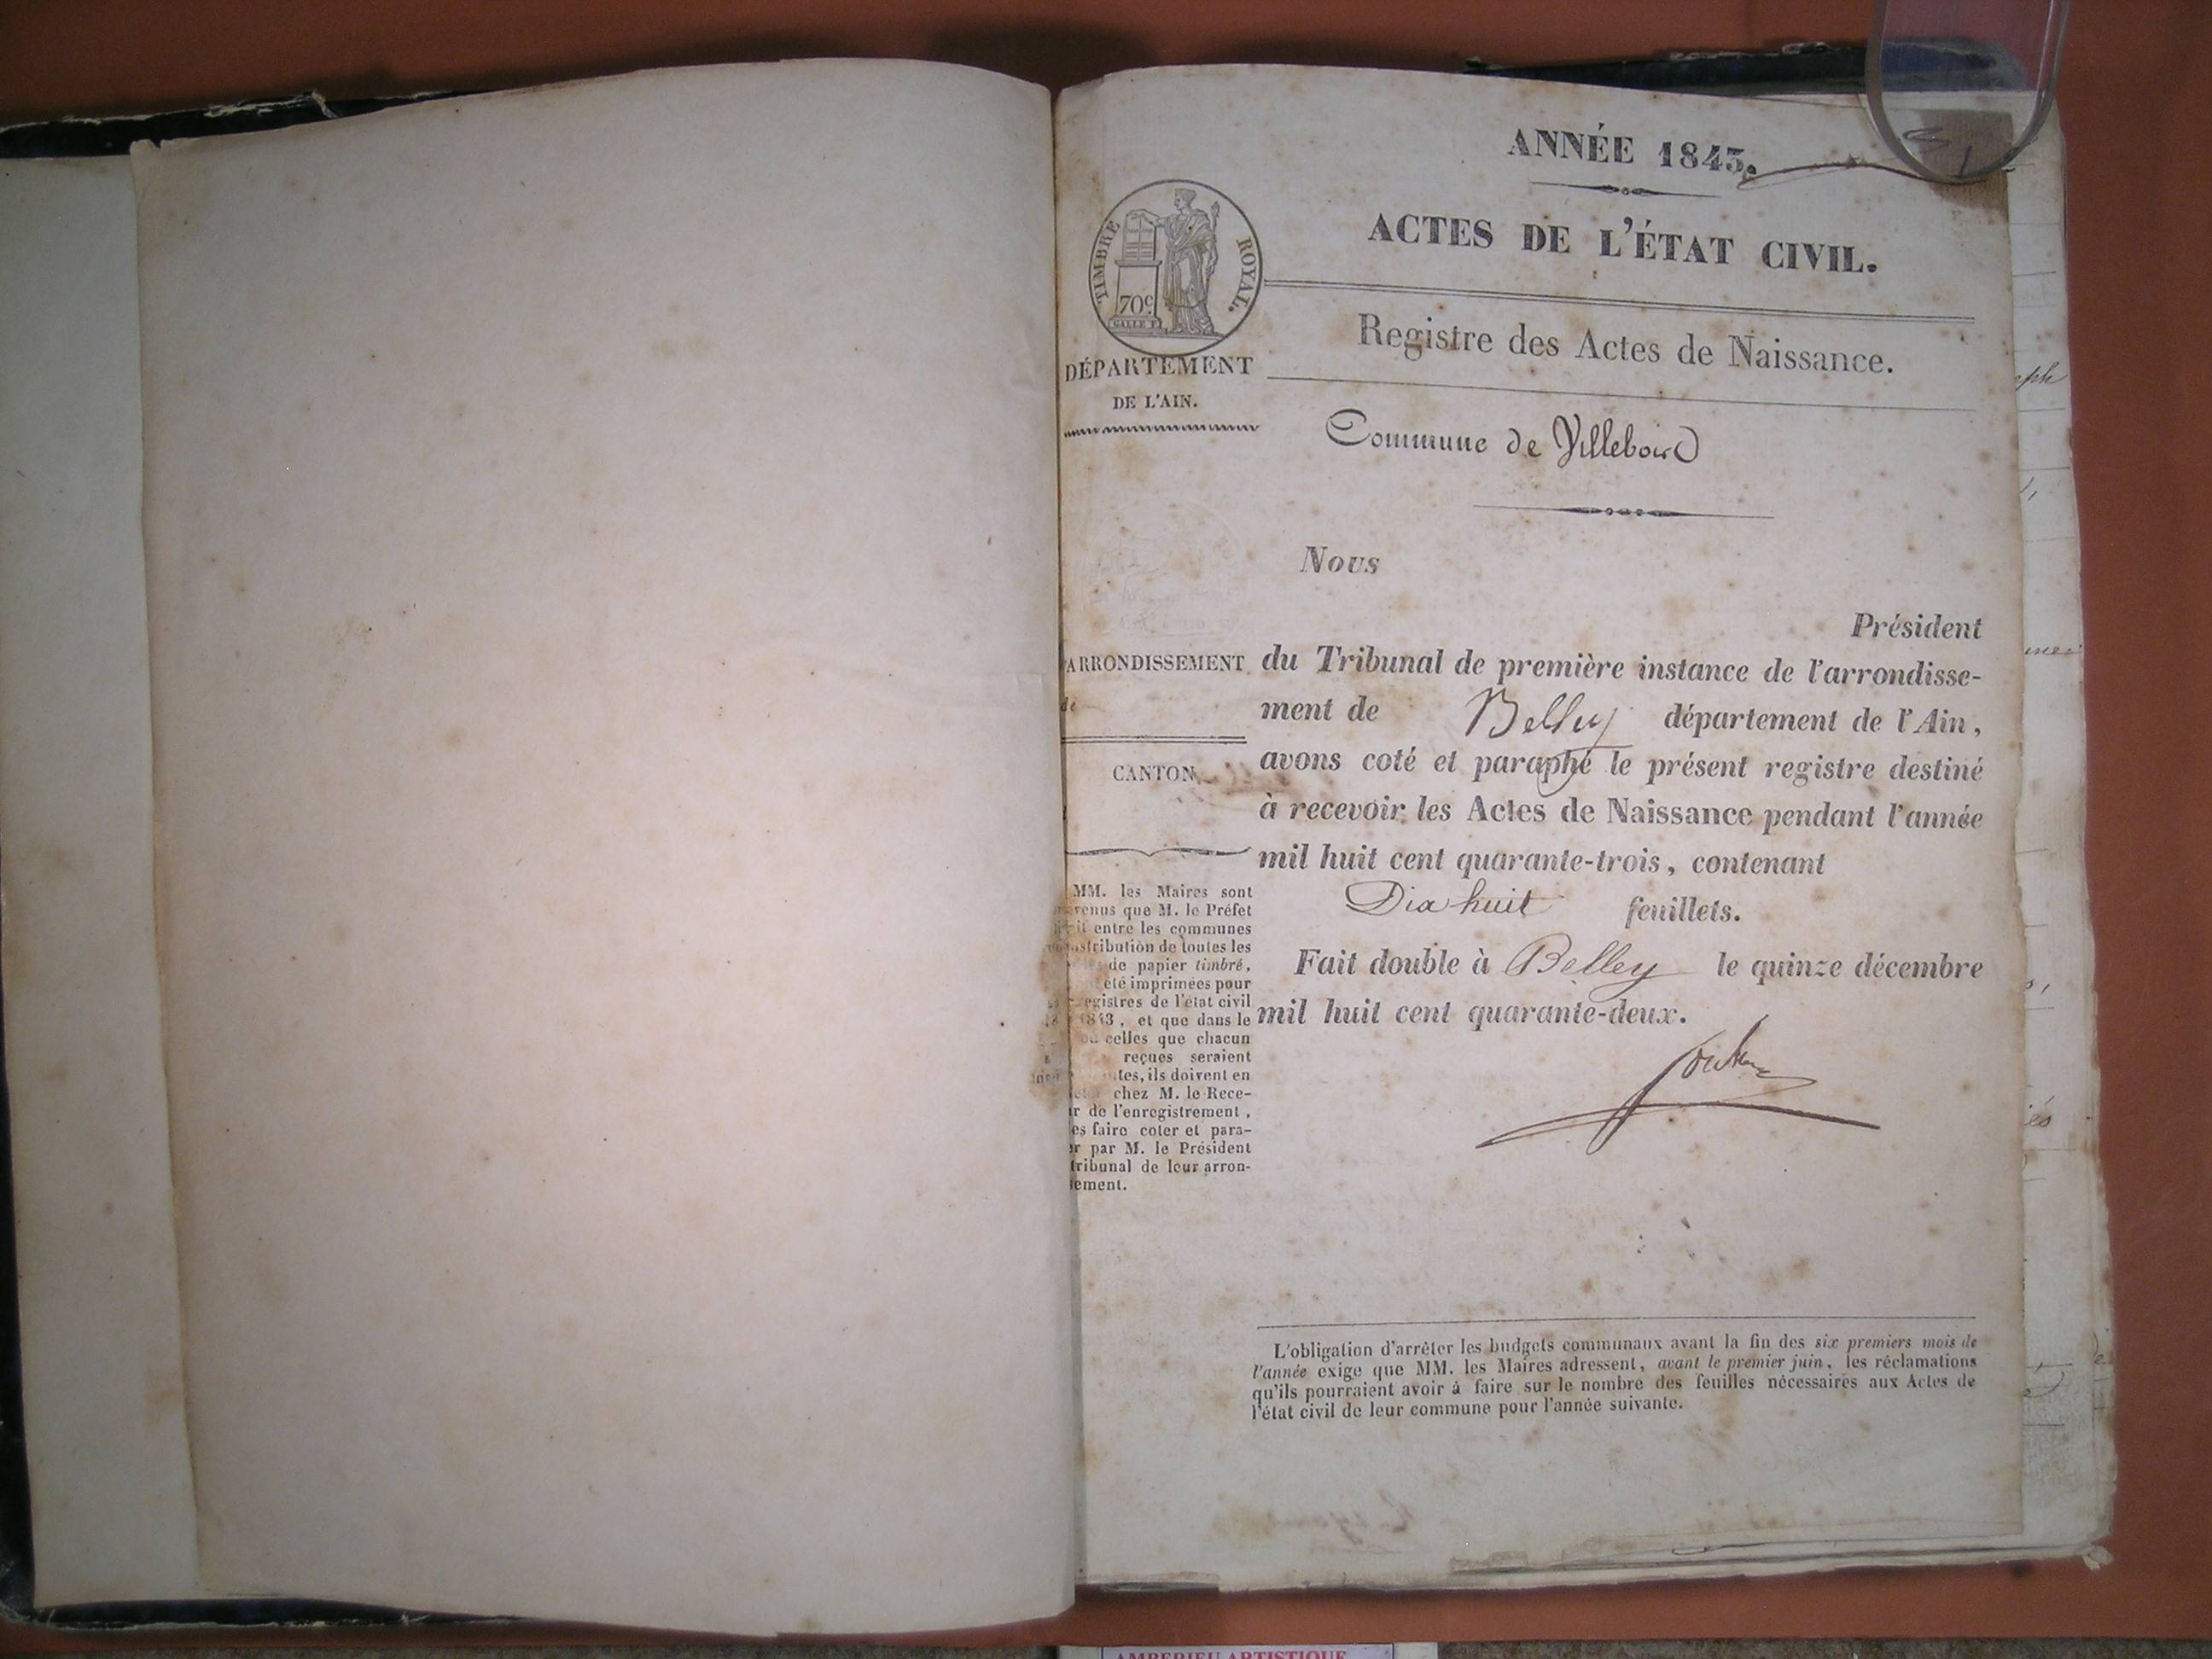 ANNÉE 1843.
ACTES DE L'ÉTAT CIVIL.
TIMBRE ROYAL.
70c.
DÉPARTEMENT
DE L'AIN.
Registre des Actes de Naissance.
Commune de Villebois
Nous
Président
ARRONDISSEMENT
de
CANTON
du Tribunal de première instance de l'arrondisse-
ment de Belley département de l'Ain,
avons coté et paraphé le présent registre destiné
à recevoir les Actes de Naissance pendant l'année
mil huit cent quarante-trois, contenant
Dix huit feuillets.
Fait double à Belley le quinze décembre
mil huit cent quarante-deux.
MM. les Maires sont
que M. le Préfet
entre les communes
de toutes les
de papier timbré,
été imprimées pour
registres de l'état civil
1843, et que dans le
celles que chacun
reçues seraient
ils doivent en
chez M. le Rece-
de l'enregistrement,
faire coter et para-
par M. le Président
tribunal de leur arron-
L'obligation d'arrêter les budgets communaux avant la fin des six premiers mois de
l'année exige que MM. les Maires adressent, avant le premier juin, les réclamations
qu'ils pourraient avoir à faire sur le nombre des feuilles nécessaires aux Actes de
l'état civil de leur commune pour l'année suivante.
AMBERIEU ARTISTIQUE